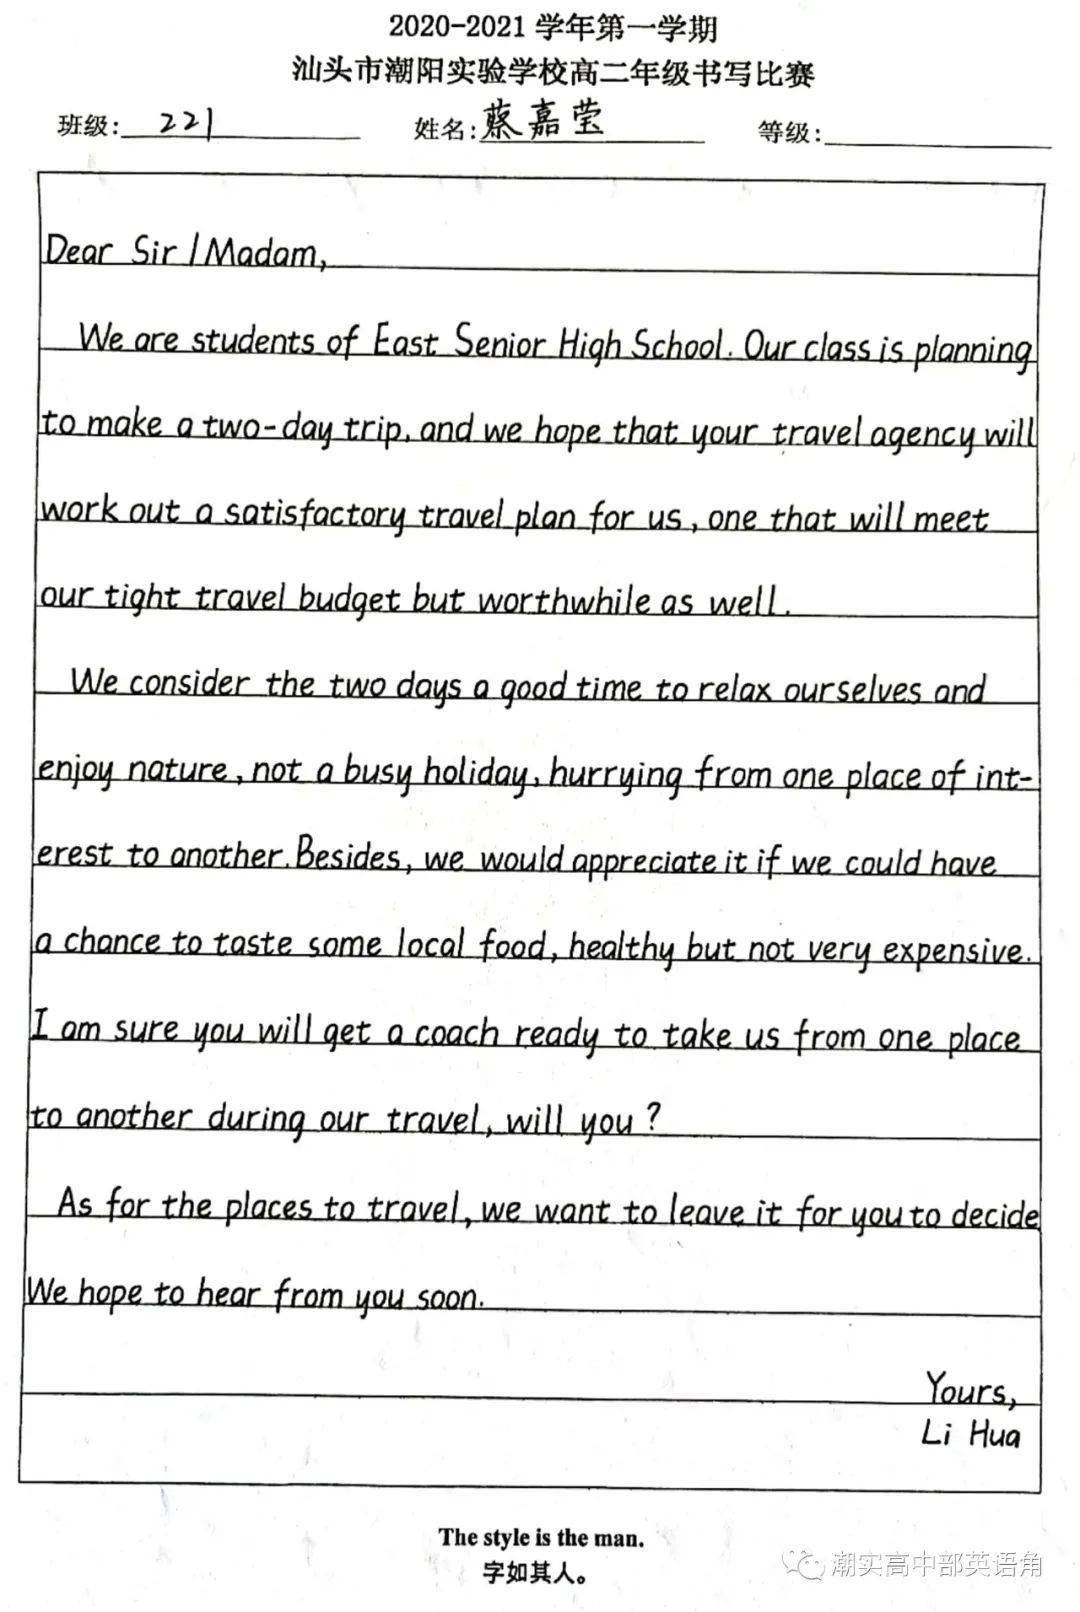 2020-2021 学年第一学期
汕头市潮阳实验学校高二年级书写比赛
班级: 221 姓名: 蔡嘉莹 等级:
Dear Sir / Madam,
We are students of East Senior High School. Our class is planning
to make a two-day trip, and we hope that your travel agency will
work out a satisfactory travel plan for us, one that will meet
our tight travel budget but worthwhile as well.
We consider the two days a good time to relax ourselves and
enjoy nature, not a busy holiday, hurrying from one place of int-
erest to another. Besides, we would appreciate it if we could have
a chance to taste some local food, healthy but not very expensive.
I am sure you will get a coach ready to take us from one place
to another during our travel, will you?
As for the places to travel, we want to leave it for you to decide
We hope to hear from you soon.
Yours,
Li Hua
The style is the man.
字如其人。
潮实高中部英语角